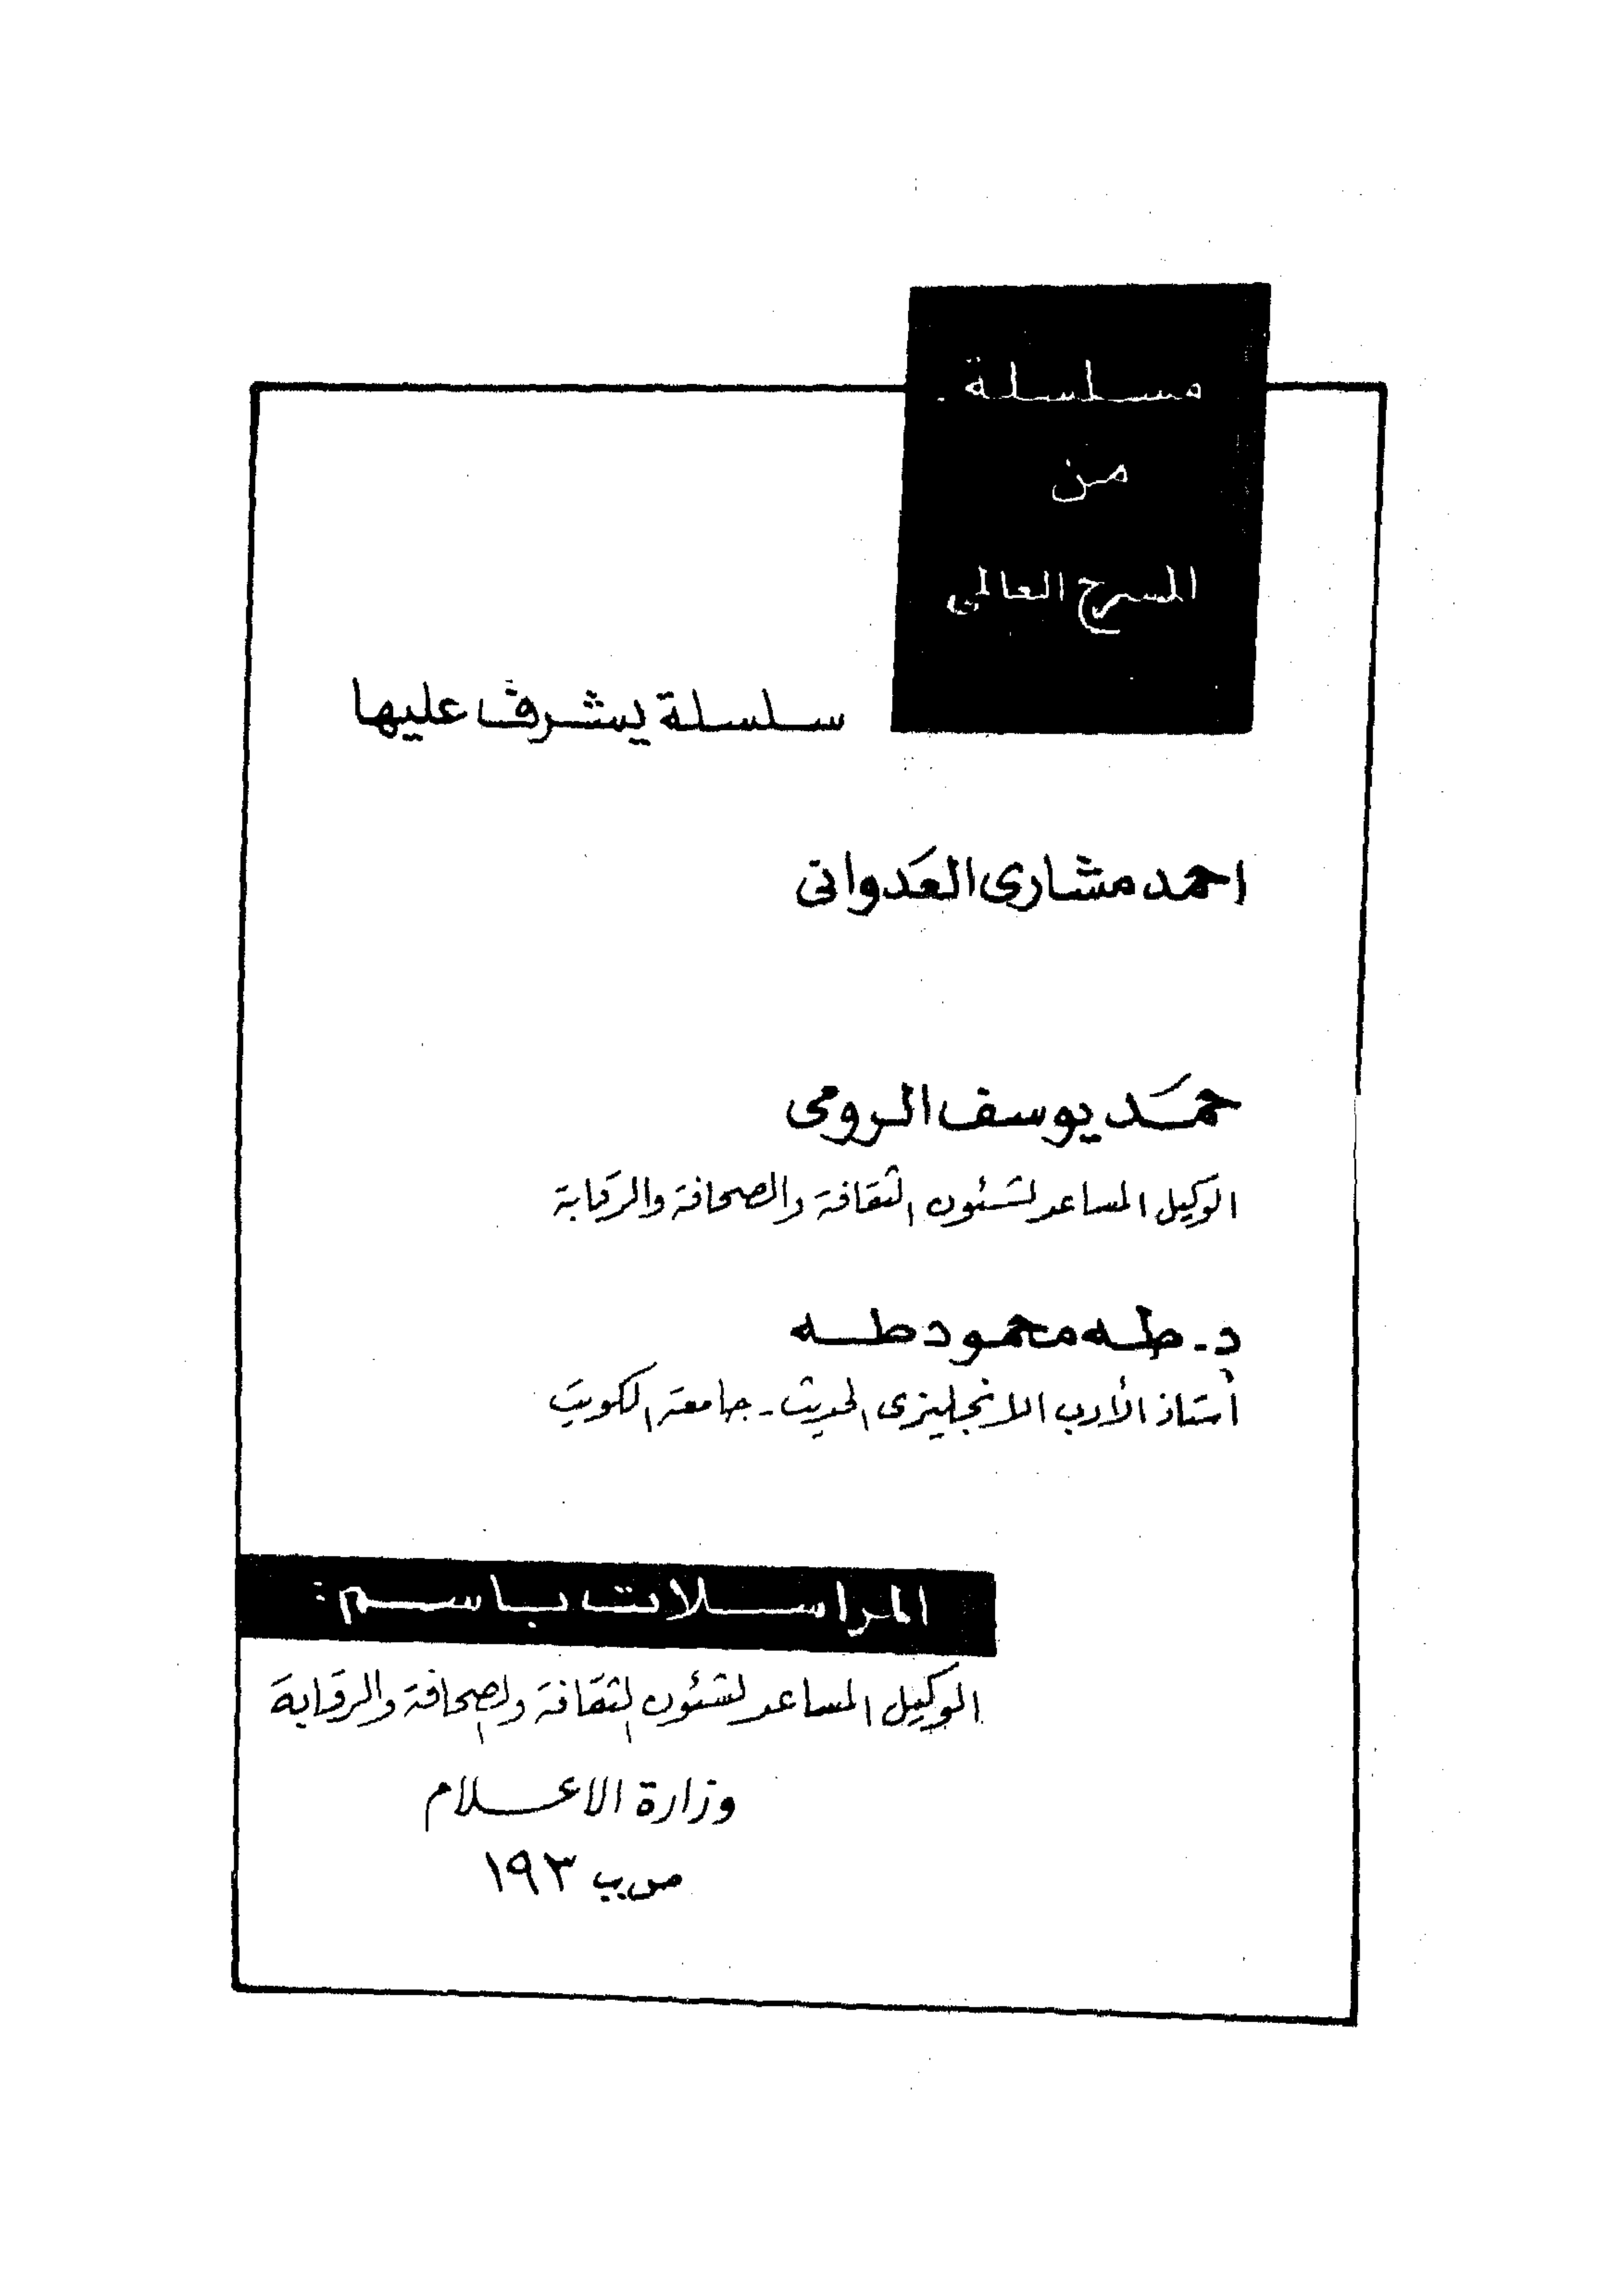 مسلسلة
من
المسرح العالمي
سلسلة يشرف عليها
احمد مشارى العدوانى
حمد يوسف الرومى
الوكيل المساعد لشئون الثقافة والصحافة والرقابة
د. طه محمود طه
أستاذ الأدب الانجليزى الحديث - جامعة الكويت
المراسلات باسم :
الوكيل المساعد لشئون الثقافة والصحافة والرقابة
وزارة الاعلام
ص ب ١٩٣